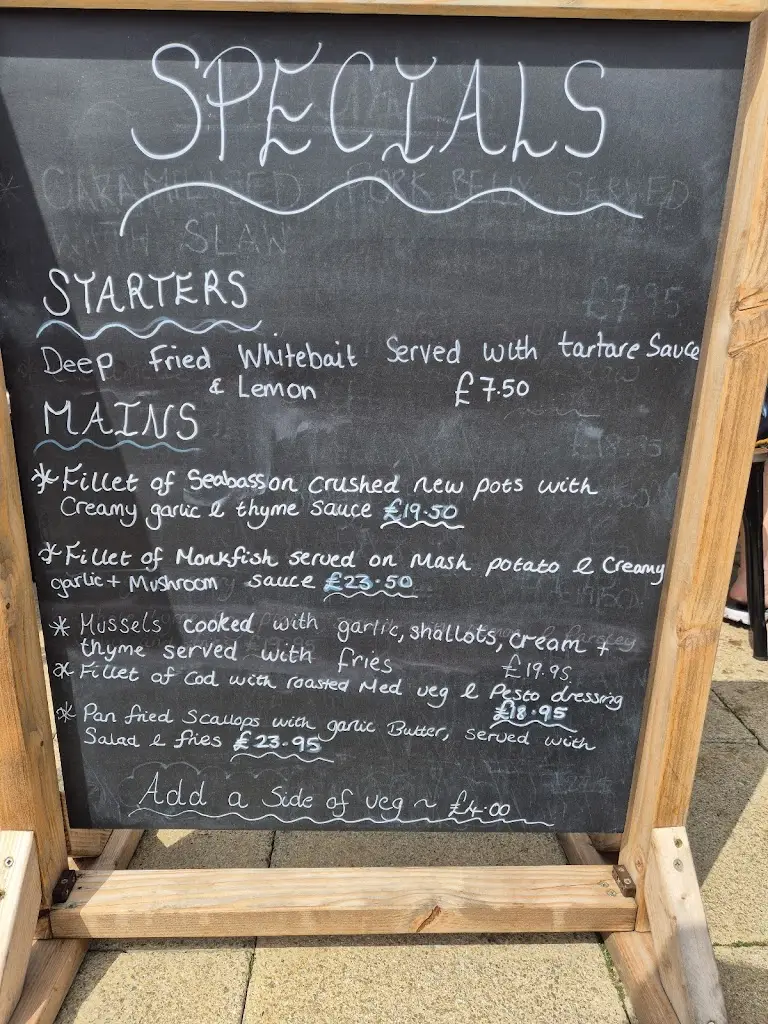 SPECIALS
* CARAMELISED PORK BELLY SERVED
WITH SLAW
£7.95
STARTERS
Deep Fried Whitebait Served with tartare Sauce
& Lemon £7.50
MAINS
* Fillet of Seabass on crushed new pots with
Creamy garlic & thyme sauce £19.50
* Fillet of Monkfish served on Mash potato & Creamy
garlic + Mushroom sauce £23.50
* Mussels cooked with garlic, shallots, cream +
thyme served with fries £19.95
* Fillet of Cod with roasted Med veg & Pesto dressing
£18.95
* Pan fried Scallops with garlic Butter, served with
Salad & fries £23.95
Add a Side of veg ~ £4.00